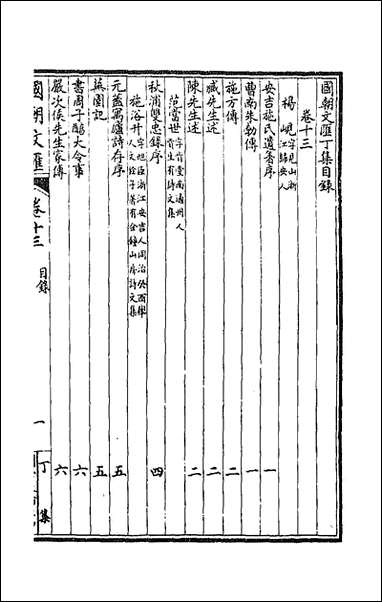 國朝文匯丁集目錄
卷十三
楊峴 字見山浙江歸安人
安吉施氏遺著序 一
曹南朱勒傳 一
施方傳 二
臧先生述 二
陳先生述 二
范當世 字肯堂南通州人貢生有詩文集
秋浦雙忠錄序 四
施浴升 字旭臣浙江安吉人同治癸酉舉人文銓子著有金鐘山房詩文集
元蓋寓廬詩存序 五
蕪園記 五
書周子醅大令事 六
嚴次侯先生家傳 六
國朝文匯 卷十三 目錄 一 丁集